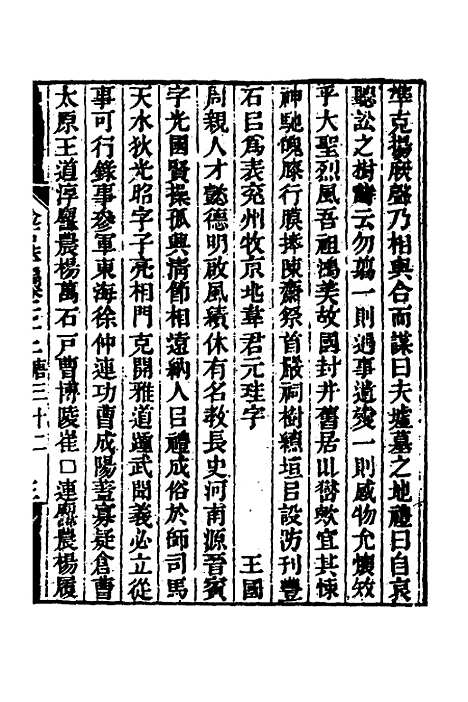 準克揚厥聲乃相與合而謀曰夫墟墓之地禮曰自哀
聽訟之樹詩云勿翦一則遇事遺 一則感物允懷矧
乎大聖烈風吾祖鴻美故國封井舊居山 歟宜其悚
神馳愧膝行膜拜陳齋祭首嚴祠樹繚垣㠯設防刊豐
石㠯爲表兖州牧京地韋君元珪字 王國
周親人才懿德明啟風績休有名教長史河南源晉賓
字光國賢操孤興清節相遠納人㠯禮成俗於師司馬
天水狄光昭字子亮相門克開雅道踵武聞義必立從
事可行錄事參軍東海徐仲連功曹成陽蓋寡疑倉曹
太原王道淳 農楊萬石戸曹博陵崔口連 農楊履
金石萃編卷七十二 唐三十二 三